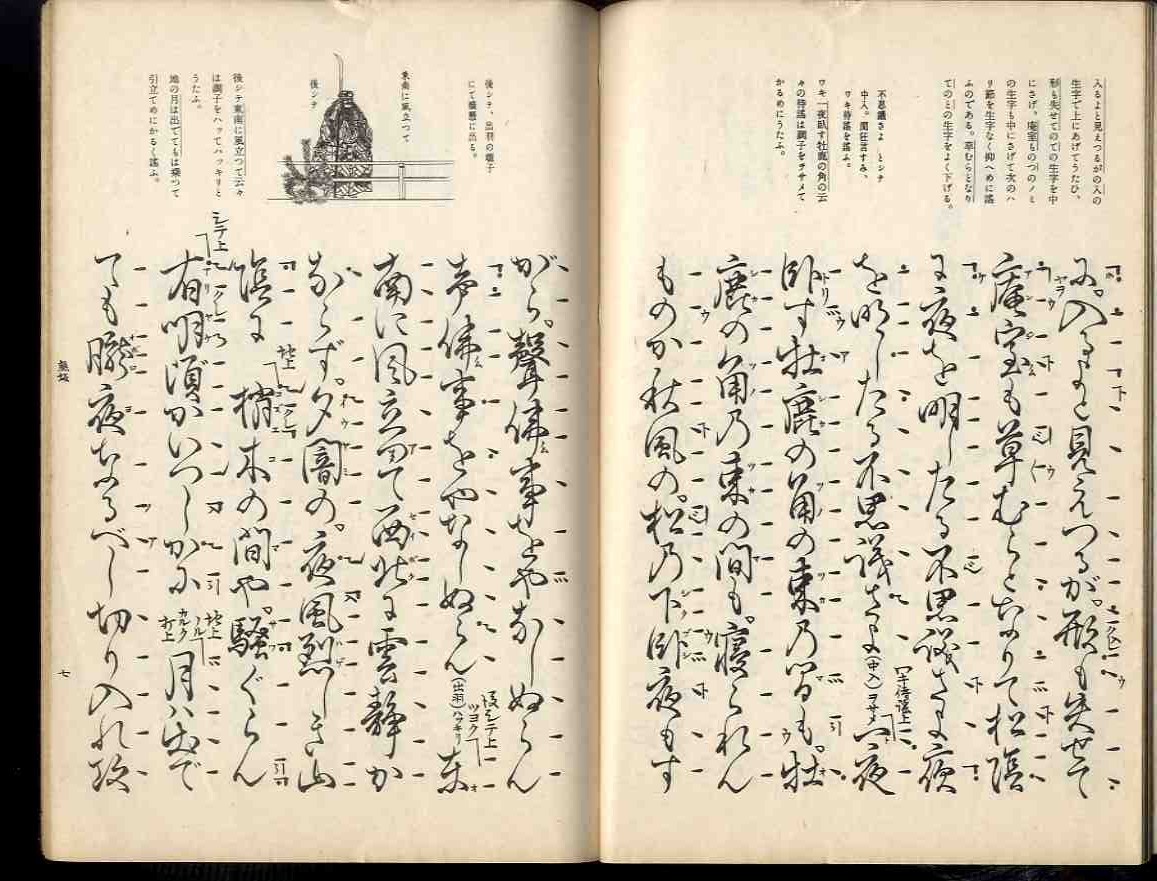 入るよと見えつるがの入の
生字で上にあげてうたひ、
形も失せてのての生字を中
にさげ、庵室ものつのノミ
の生字も中にさげて次のハ
リ節を生字なく抑へめに謠
ふのである。草むらとなり
てのとの生字をよく下げる。
不思議さよ とシテ
中入。間狂言すみ、
ワキ待謠を謠ふ。
ワキ「一夜臥す牡鹿の角の云
々の待謠は調子をヲサメて
かるめにうたふ。
に。入るよと見えつるが。形も失せて
庵室も草むらとなりて松蔭
に夜を明したる不思議さよ夜
を明したる不思議さよ(中入) ワキ待謠上 ヲサメ 一夜
臥す牡鹿の角の束の間も。牡
鹿の角の束の間も。寝られん
ものか秋風の。松の下臥夜もす
後シテ、出羽の囃子
にて橋懸に出る。
東南に風立つて、
後シテ
後シテ東南に風立つて云々
は調子をハッてハッキリと
うたふ。
地の月は出でてもは乗つて
引立てめにかるく謠ふ。
がら。聲佛事をやなしぬらん
聲佛事をやなしぬらん(出羽) 後シテ上 ツヨク ハッキリ 東
南に風立つて西北に雲静か
ならず。夕闇の。夜風烈しき山
陰に 地上 梢木の間や。騒ぐらん
シテ上 有明頃かいつしかに 地上 ノル カルク 打上 月は出で
ても朧夜なるべし切り入れ攻
熊坂
七